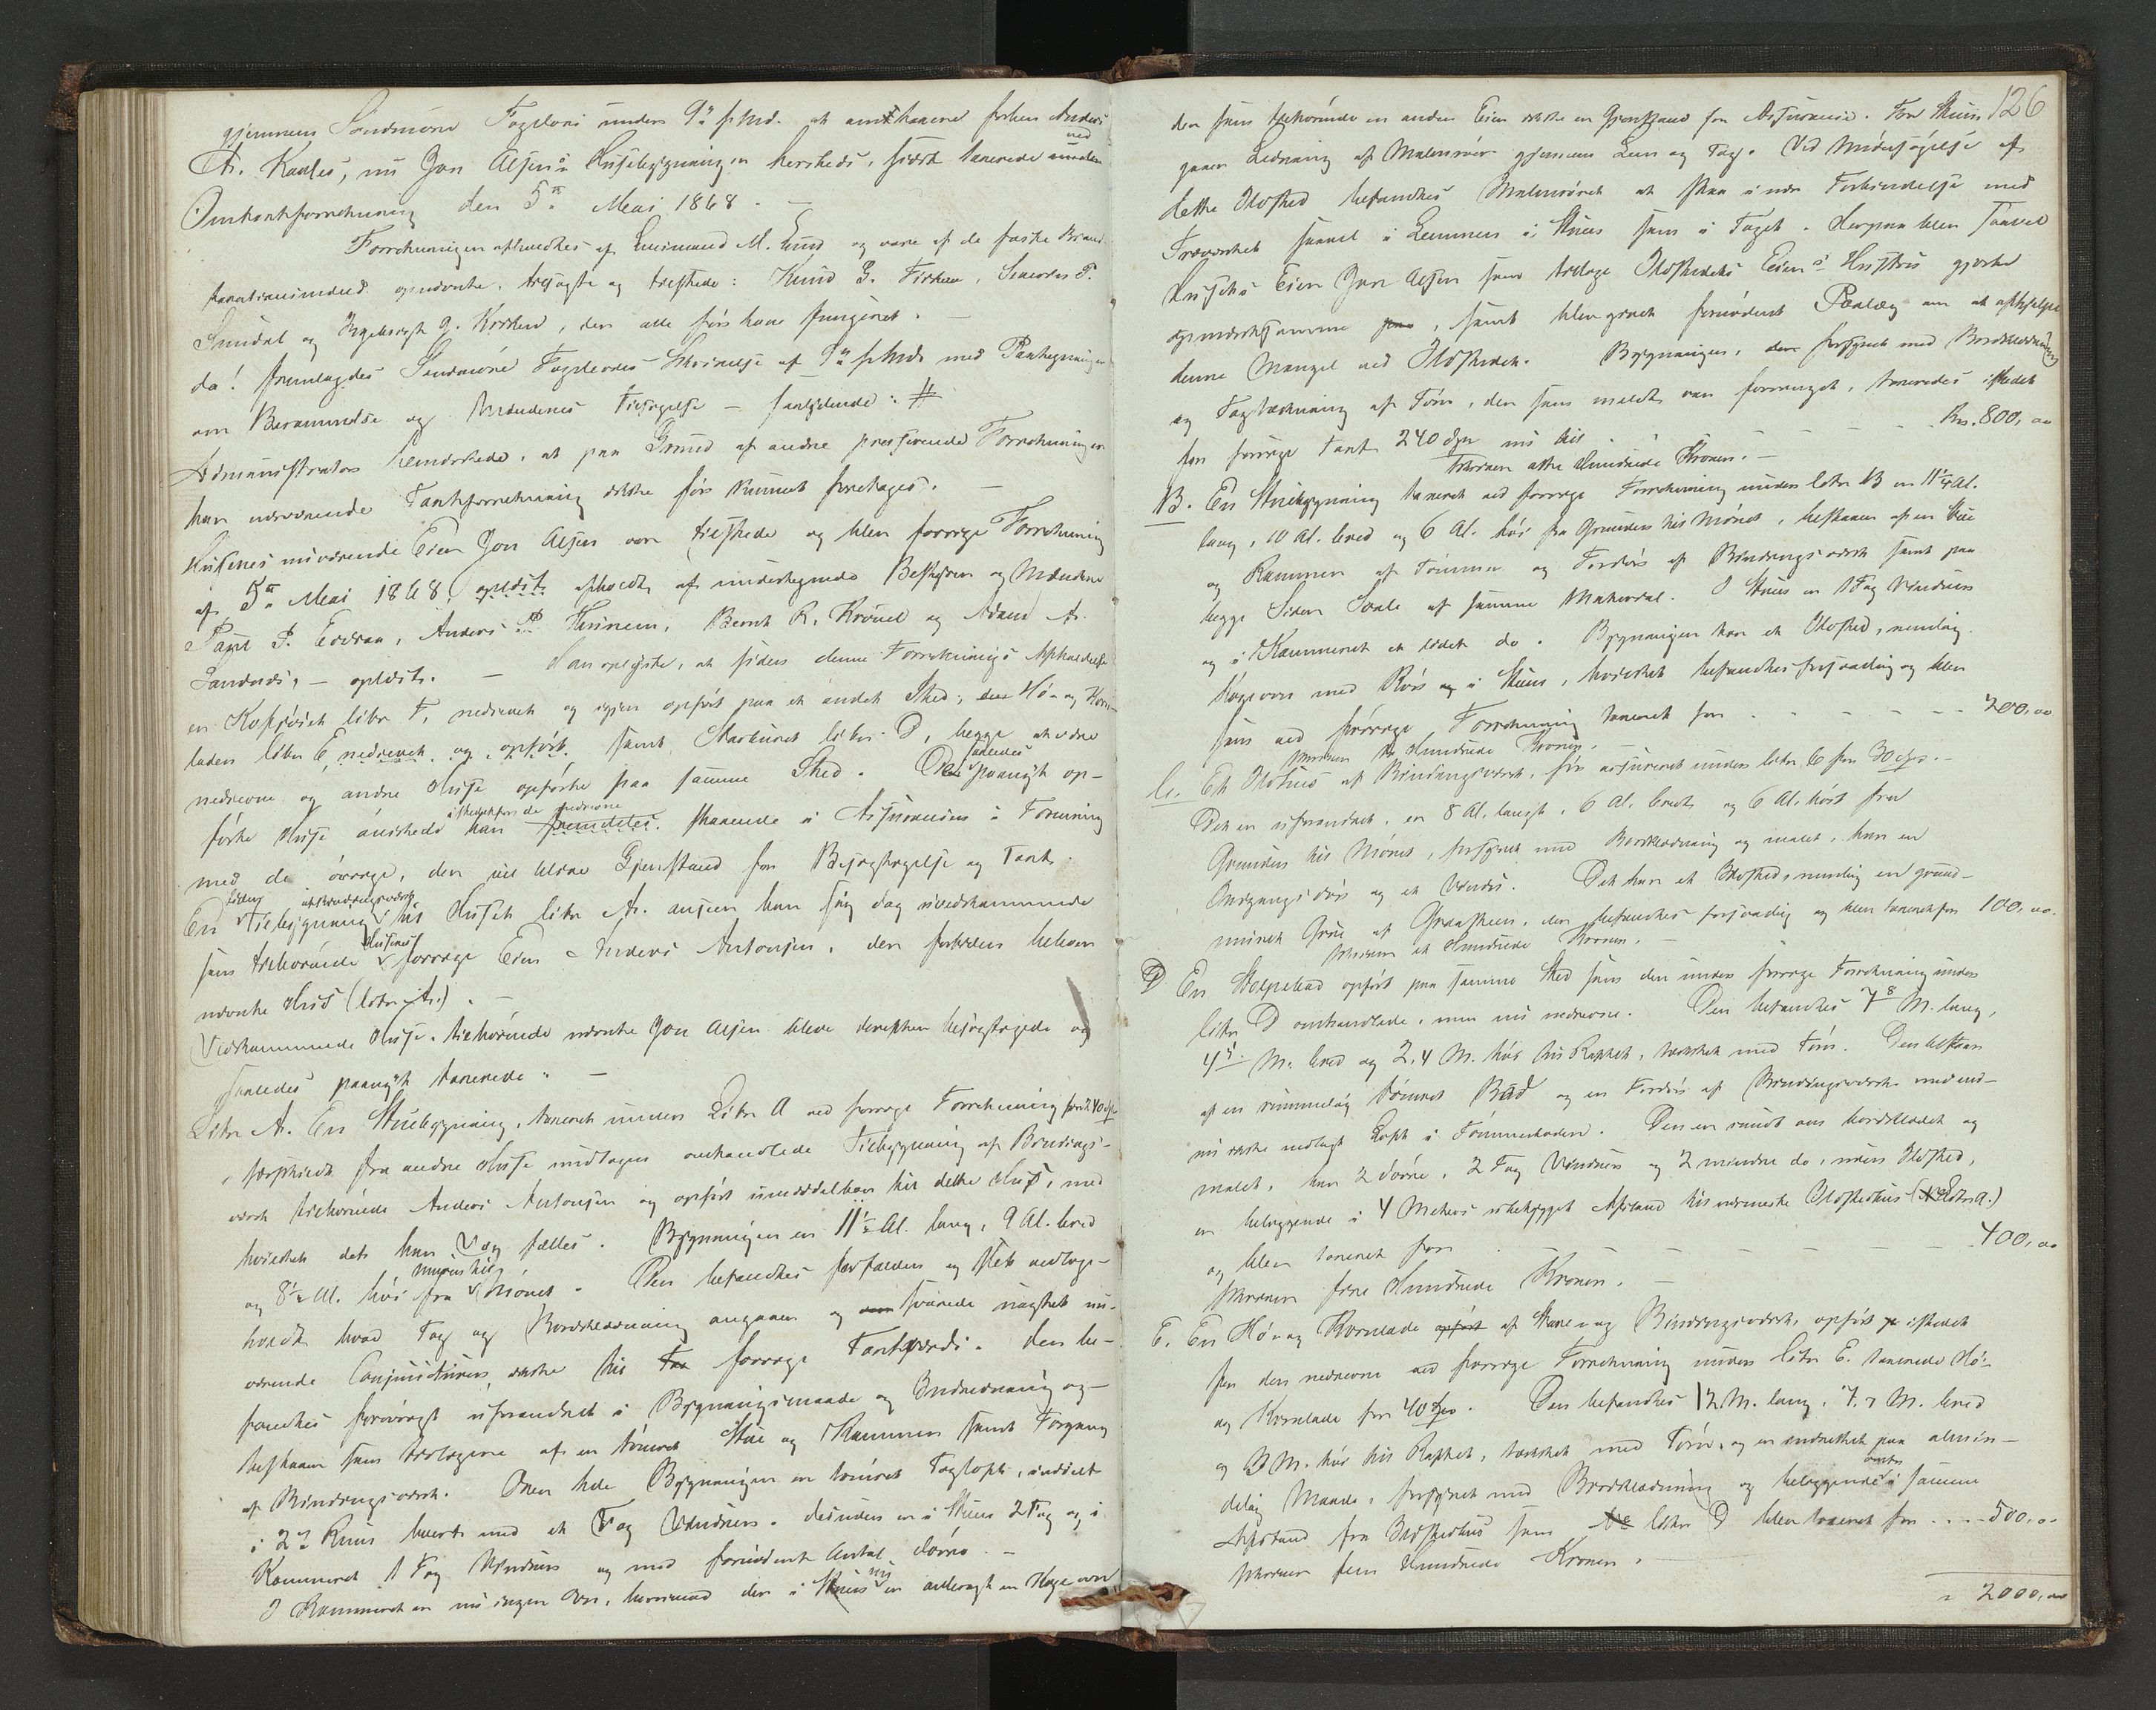 gjennem Søndmøre Fogderi under 9de s. Md. at omtaxere forhen Anders
A. Kaales, nu Jon Alsens Husebygninger hersteds, sidst taxerede ved
Omtaxtforretning den 5te Mai 1868. —
Forretningen afholdtes af Lensmand M. Lund og vare af de faste Brand-
taxationsmænd opnævnte, tilsagte og tilstede: Knud G.
og G. , der alle før have fungeret. —
da! fremlagdes Søndmøre Fogderies Skrivelse af 9de s. Mds med Paategninger
om Berammelse og Mændenes Tilsigelse — saalydende: #
Administrator bemærkede, at paa Grund af andre presserende Forretninger
har nærværende Taxtforretning ikke før kunnet foretages. —
Husenes nuværende Eier Jon Alsen var tilstede og blev forrige Forretning
af 5te Mai 1868, opløst afholdt af undertegnede Bestyrer og Mændene
P. , Anders P. , Bernt R. og A.
, — oplæst. — Han oplyste, at siden denne Forretnings Afholdelse
er litr F, nedrevet og igjen opført paa et andet Sted; Hø- og Korn-
laden litr E nedrevet og opført, samt litr. D, begge at være
nedrevne og andre Huse opførte paa samme Sted. De saaledes paanyt op-
førte Huse ønskede han istedetfor de nedrevne staaende i Assurancen i Forening
med de øvrige, der vil blive Gjenstand for Besigtigelse og Taxt.
En siden Tilbygning af Bindingsværk til Huset litr A. anseer han sig dog uvedkommende
som tilhørende Husenes forrige Eier Anders Antonsen, der fortiden beboer
nævnte Hus (litr. A.). —
Vedkommende Huse, tilhørende nævnte Jon Alsen bleve derefter besigtigede og
saaledes paanyt taxerede: —
Litr A. En Stuebygning, taxeret under Litr A ved forrige Forretning
særskildt fra andre Huse undtagen omhandlede Tilbygning af Bindings-
værk tilhørende Anders Antonsen og opført umiddelbar til dette Hus, med
hvilket det har Væg fælles. Bygningen er 11½ Al. lang, 9 Al. bred
og 8½ Al. høi fra til Mønet. Den befandtes forfalden og slet vedlige-
holdt hvad Tag og Bordklædning angaaer og svarede uagtet nu-
værende Conjuncturer ikke til forrige Taxtværdi. Den be-
fandtes forøvrigt uforandret i Bygningsmaade og Indredning og
bestaaer som tidligere af en tømret Stue og Kammer samt Forgang
af Bindingsværk. Over hele Bygningen er tømret Tagloft, inddelt
i 2de Rum hvert med et Fag Vinduer. desuden er i Stuen 2 Fag og i
Kammeret 1 Fag Vinduer og med fornødent Antal Døre. —
I Kammeret er nu ingen Ovn, hvorimod der i Stuen nu er anbragt en Kogeovn
126
der som tilhørende en anden Eier ikke er Gjenstand for Assurance. Fra Stuen
gaaer Ledning af Malmrør gjennem Lem og Tag. Ved Undersøgelse af
dette Ildsted befandtes Malmrøret at staa i nær Forbindelse med
Træværket saavel i Lemmen i Stuen som i Taget. Herpaa blev saavel
Husets Eier Jon Alsen som tillige Ildstedets Eiers Hustru gjorte
opmærksomme , samt blev givet fornødent Paalæg om at afhjelpe
denne Mangel ved Ildstedet. Bygningen, der forsynet med Bordklædning
og Tagtækning af Torv, der som meldt var forringet, taxeredes istedet
for forrige Taxt 240 Spd nu til . . . . . Kr. 800, 00
skriver otte Hundrede Kroner. —
B. En Stuebygning taxeret ved forrige Forretning under litr B er 11¼ Al.
lang, 10 Al. bred og 6 Al. høi fra Grunden til Mønet, bestaaer af en Stue
og Kammer af Tømmer og Fordør af Bindingsværk samt paa
begge Sider Svale af samme Materiale. I Stuen er 1 Fag Vinduer
og i Kammeret et lidet do. Bygningen har et Ildsted, nemlig
Kogeovn med Rør i Stuen, hvilket befandtes forsvarlig og blev
som ved forrige Forretning taxeret for . . . . . 200, 00
skriver to Hundrede Kroner. —
C. Et Ildhus af Bindingsværk, før assureret under litr C for 30 Spd. —
Det er uforandret, er 8 Al. langt, 6 Al. bredt og 6 Al. høit fra
Grunden til Mønet, forsynet med Bordklædning og malet, har en
Indgangsdør og et Vindu. Det har et Ildsted, nemlig en grund-
muret Grue af Graasten, der befandtes forsvarlig og blev taxeret for 100, 00.
skriver et Hundrede Kroner. —
D En Stolpebod opført paa samme Sted som den under forrige Forretning under
litr D omhandlede, men nu nedrevne. Den befandtes 7,8 M. lang,
4,5 M. bred og 2,4 M. høi til Raftet, tækket med Torv. Den bestaar
af en rummelig tømret Bod og en Fordør af Bindingsværk med end-
nu ikke nedlagt Loft i Tømmerboden. Den er rundt om bordklædt og
malet, har 2 Døre, 2 Fag Vinduer og 2 mindre do, uden Ildsted,
er beliggende i 4 Meters ubebygget Afstand til nærmeste Ildstedhus (Litr A.)
og blev taxeret for . — — — — — 400, 00
skriver fire Hundrede Kroner. —
E. En Hø- og Kornlade af Staver og Bindingsværk, opført istedet
for den nedrevne ved forrige Forretning under litr E. taxerede Hø-
og Kornlade for 40 Spd. Den befandtes 12 M. lang, 7,7 M. bred
og 3 M. høi til Raftet, tækket med Torv, og er indrettet paa almin-
delig Maade, forsynet med Bordklædning og beliggende omtr i samme
Afstand fra Ildstedhus som litr D blev taxeret for . . . . 500, 00
skriver fem Hundrede Kroner. —
2000, 00